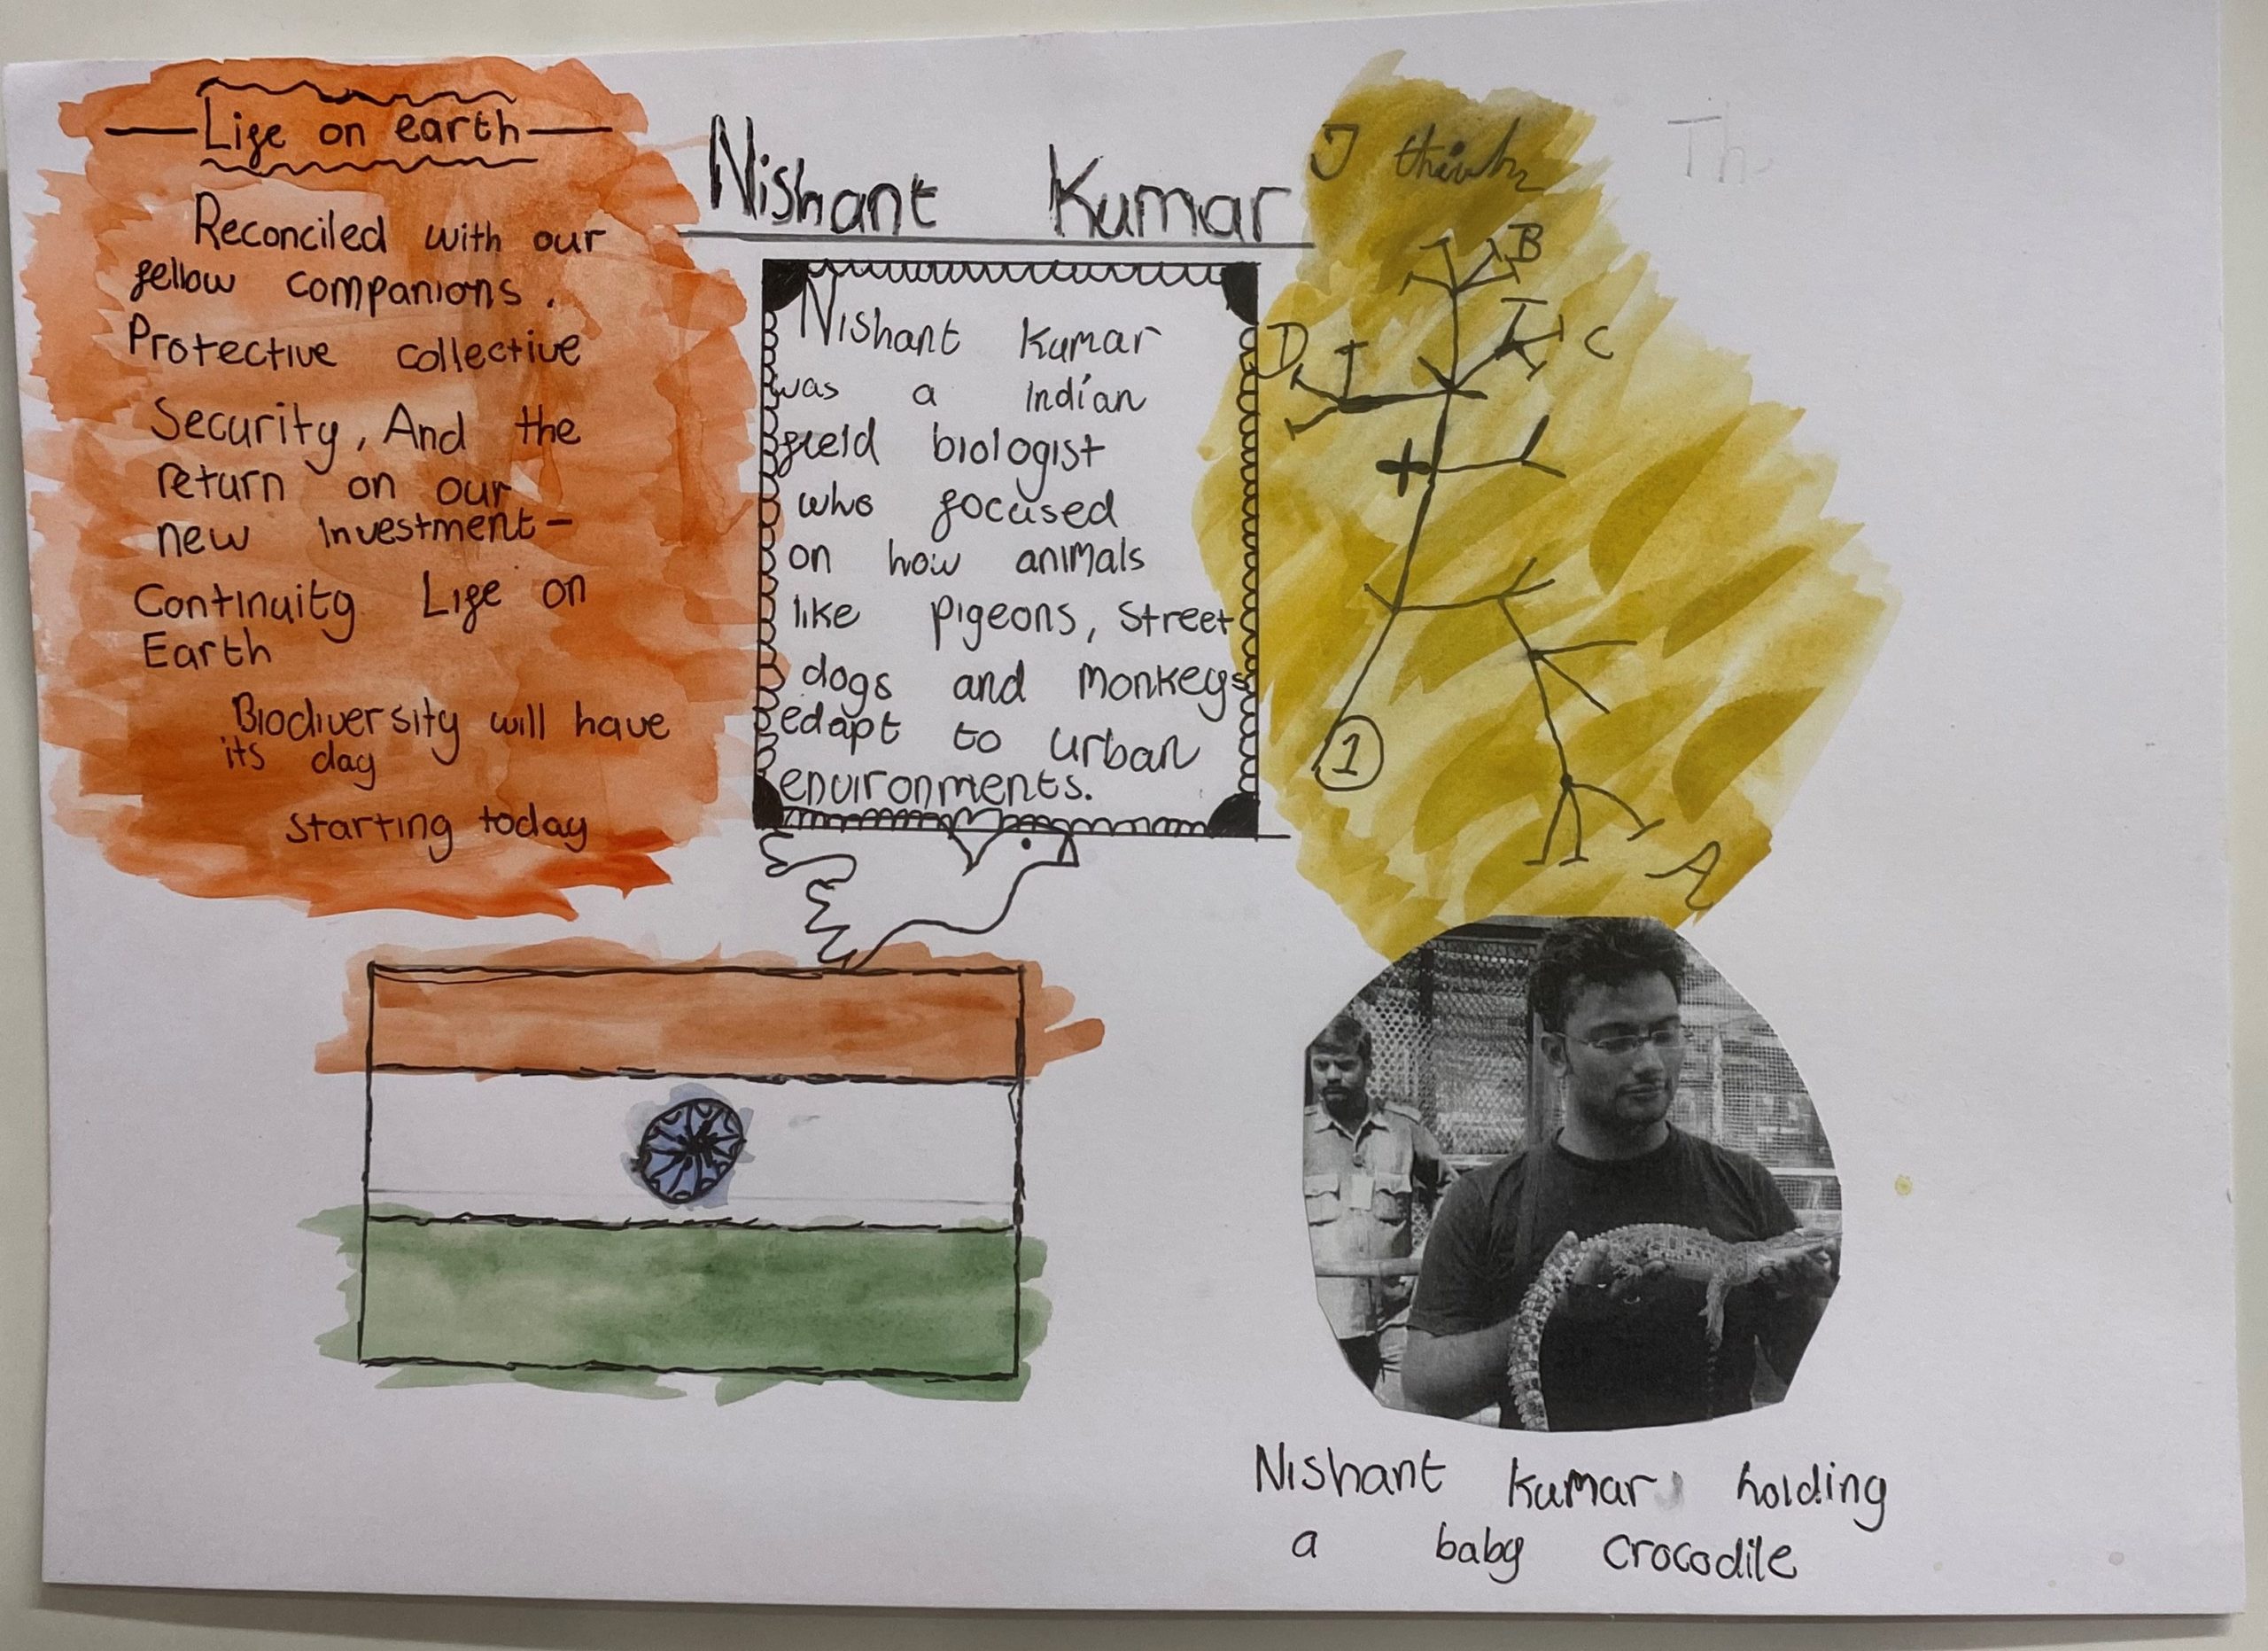 Life on earth
Reconciled with our
fellow companions.
Protective collective
Security, And the
return on our
new investment-
Continuity Life on
Earth
Biodiversity will have
its day
starting today
Nishant Kumar
Nishant Kumar
was a Indian
field biologist
who focused
on how animals
like pigeons, street
dogs and monkeys
edapt to urban
environments.
I think
Th
B
D
C
1
A
Nishant Kumar holding
a baby crocodile